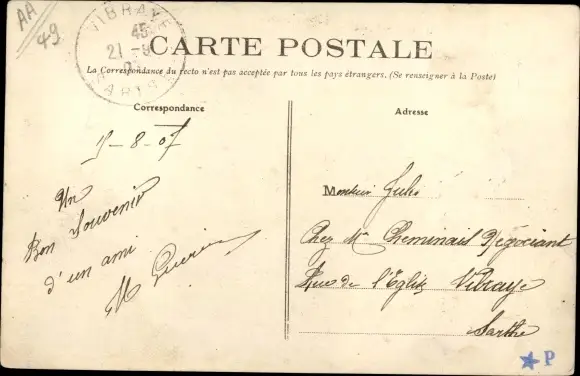 AA
49
VIBRAYE
21 -8
CARTE POSTALE
La Correspondance du recto n'est pas acceptée par tous les pays étrangers. (Se renseigner à la Poste)
Correspondance
Adresse
-8-07
Un
Bon Souvenir
d'un ami
M
Monsieur Jules
Chez Mr Cheminais Négociant
Rue de l'Eglise Vibraye
Sarthe
P